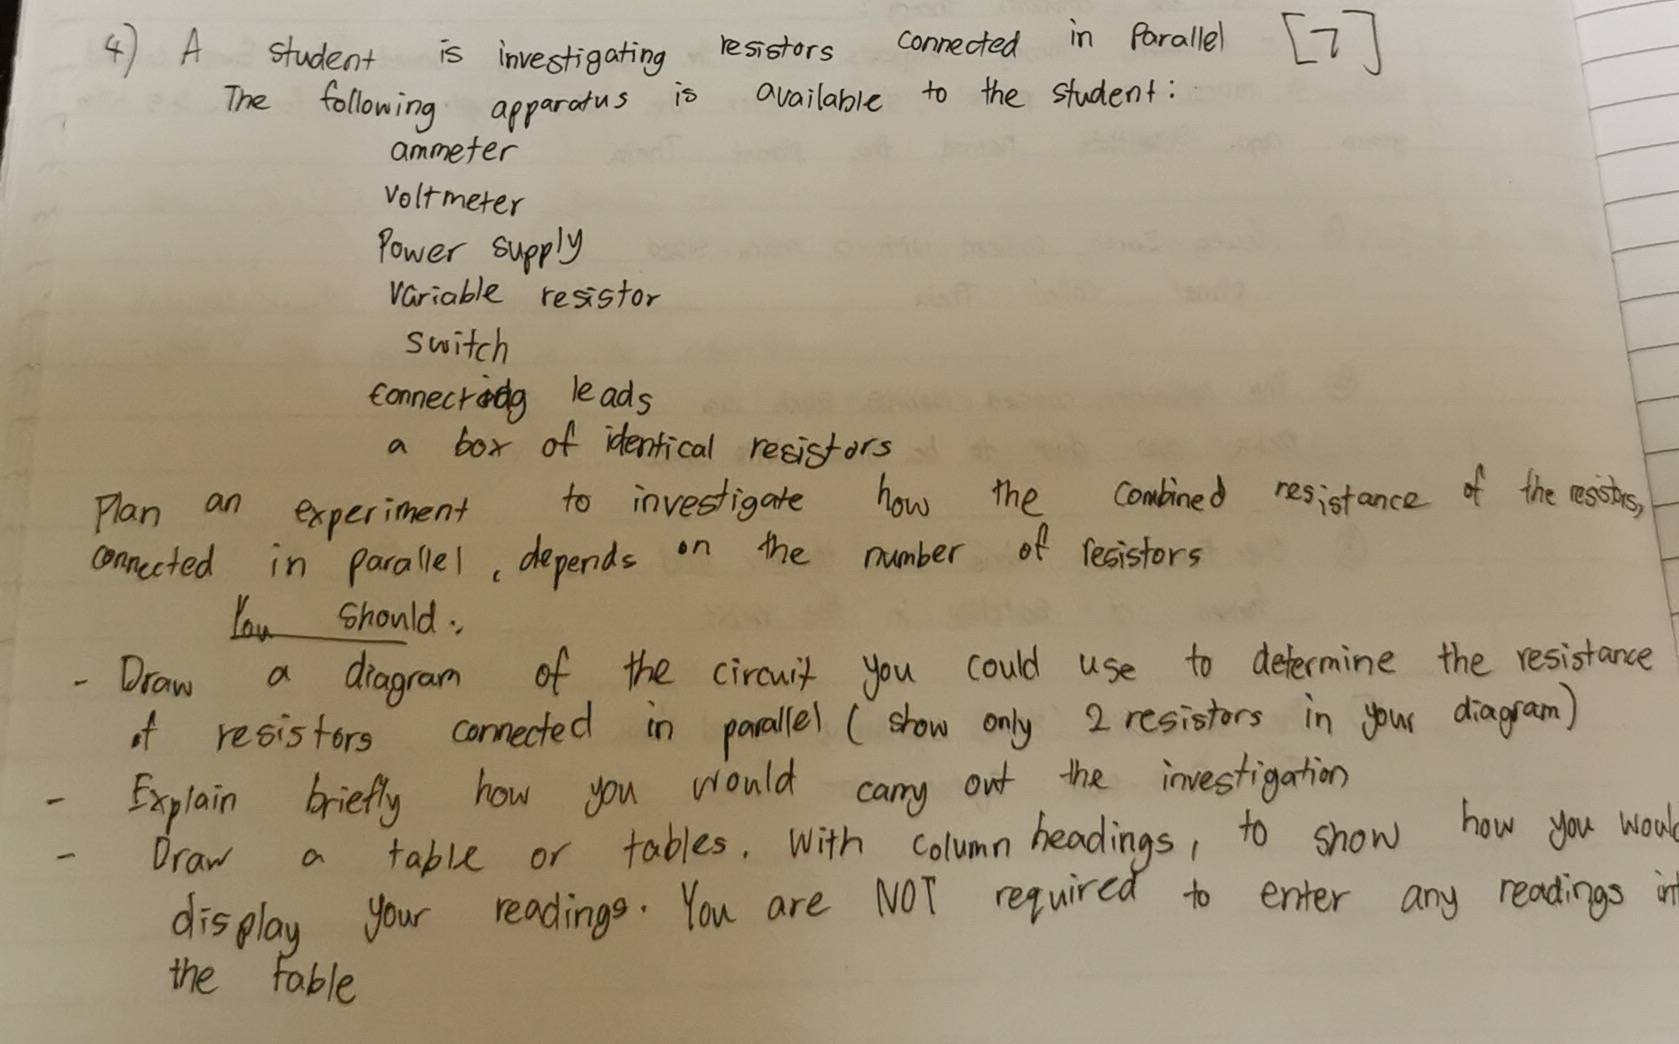 4) A student is investigating resistors connected in Parallel [7]
The following apparatus is available to the student:
ammeter
Voltmeter
Power supply
Variable resistor
switch
connecting leads
a box of identical resistors
Plan an experiment to investigate how the combined resistance of the resistors,
connected in parallel, depends on the number of resistors
You should:
- Draw a diagram of the circuit you could use to determine the resistance
of resistors connected in parallel ( show only 2 resistors in your diagram)
- Explain briefly how you would carry out the investigation
- Draw a table or tables. With column headings, to show how you would
display your readings. You are NOT required to enter any readings in
the table